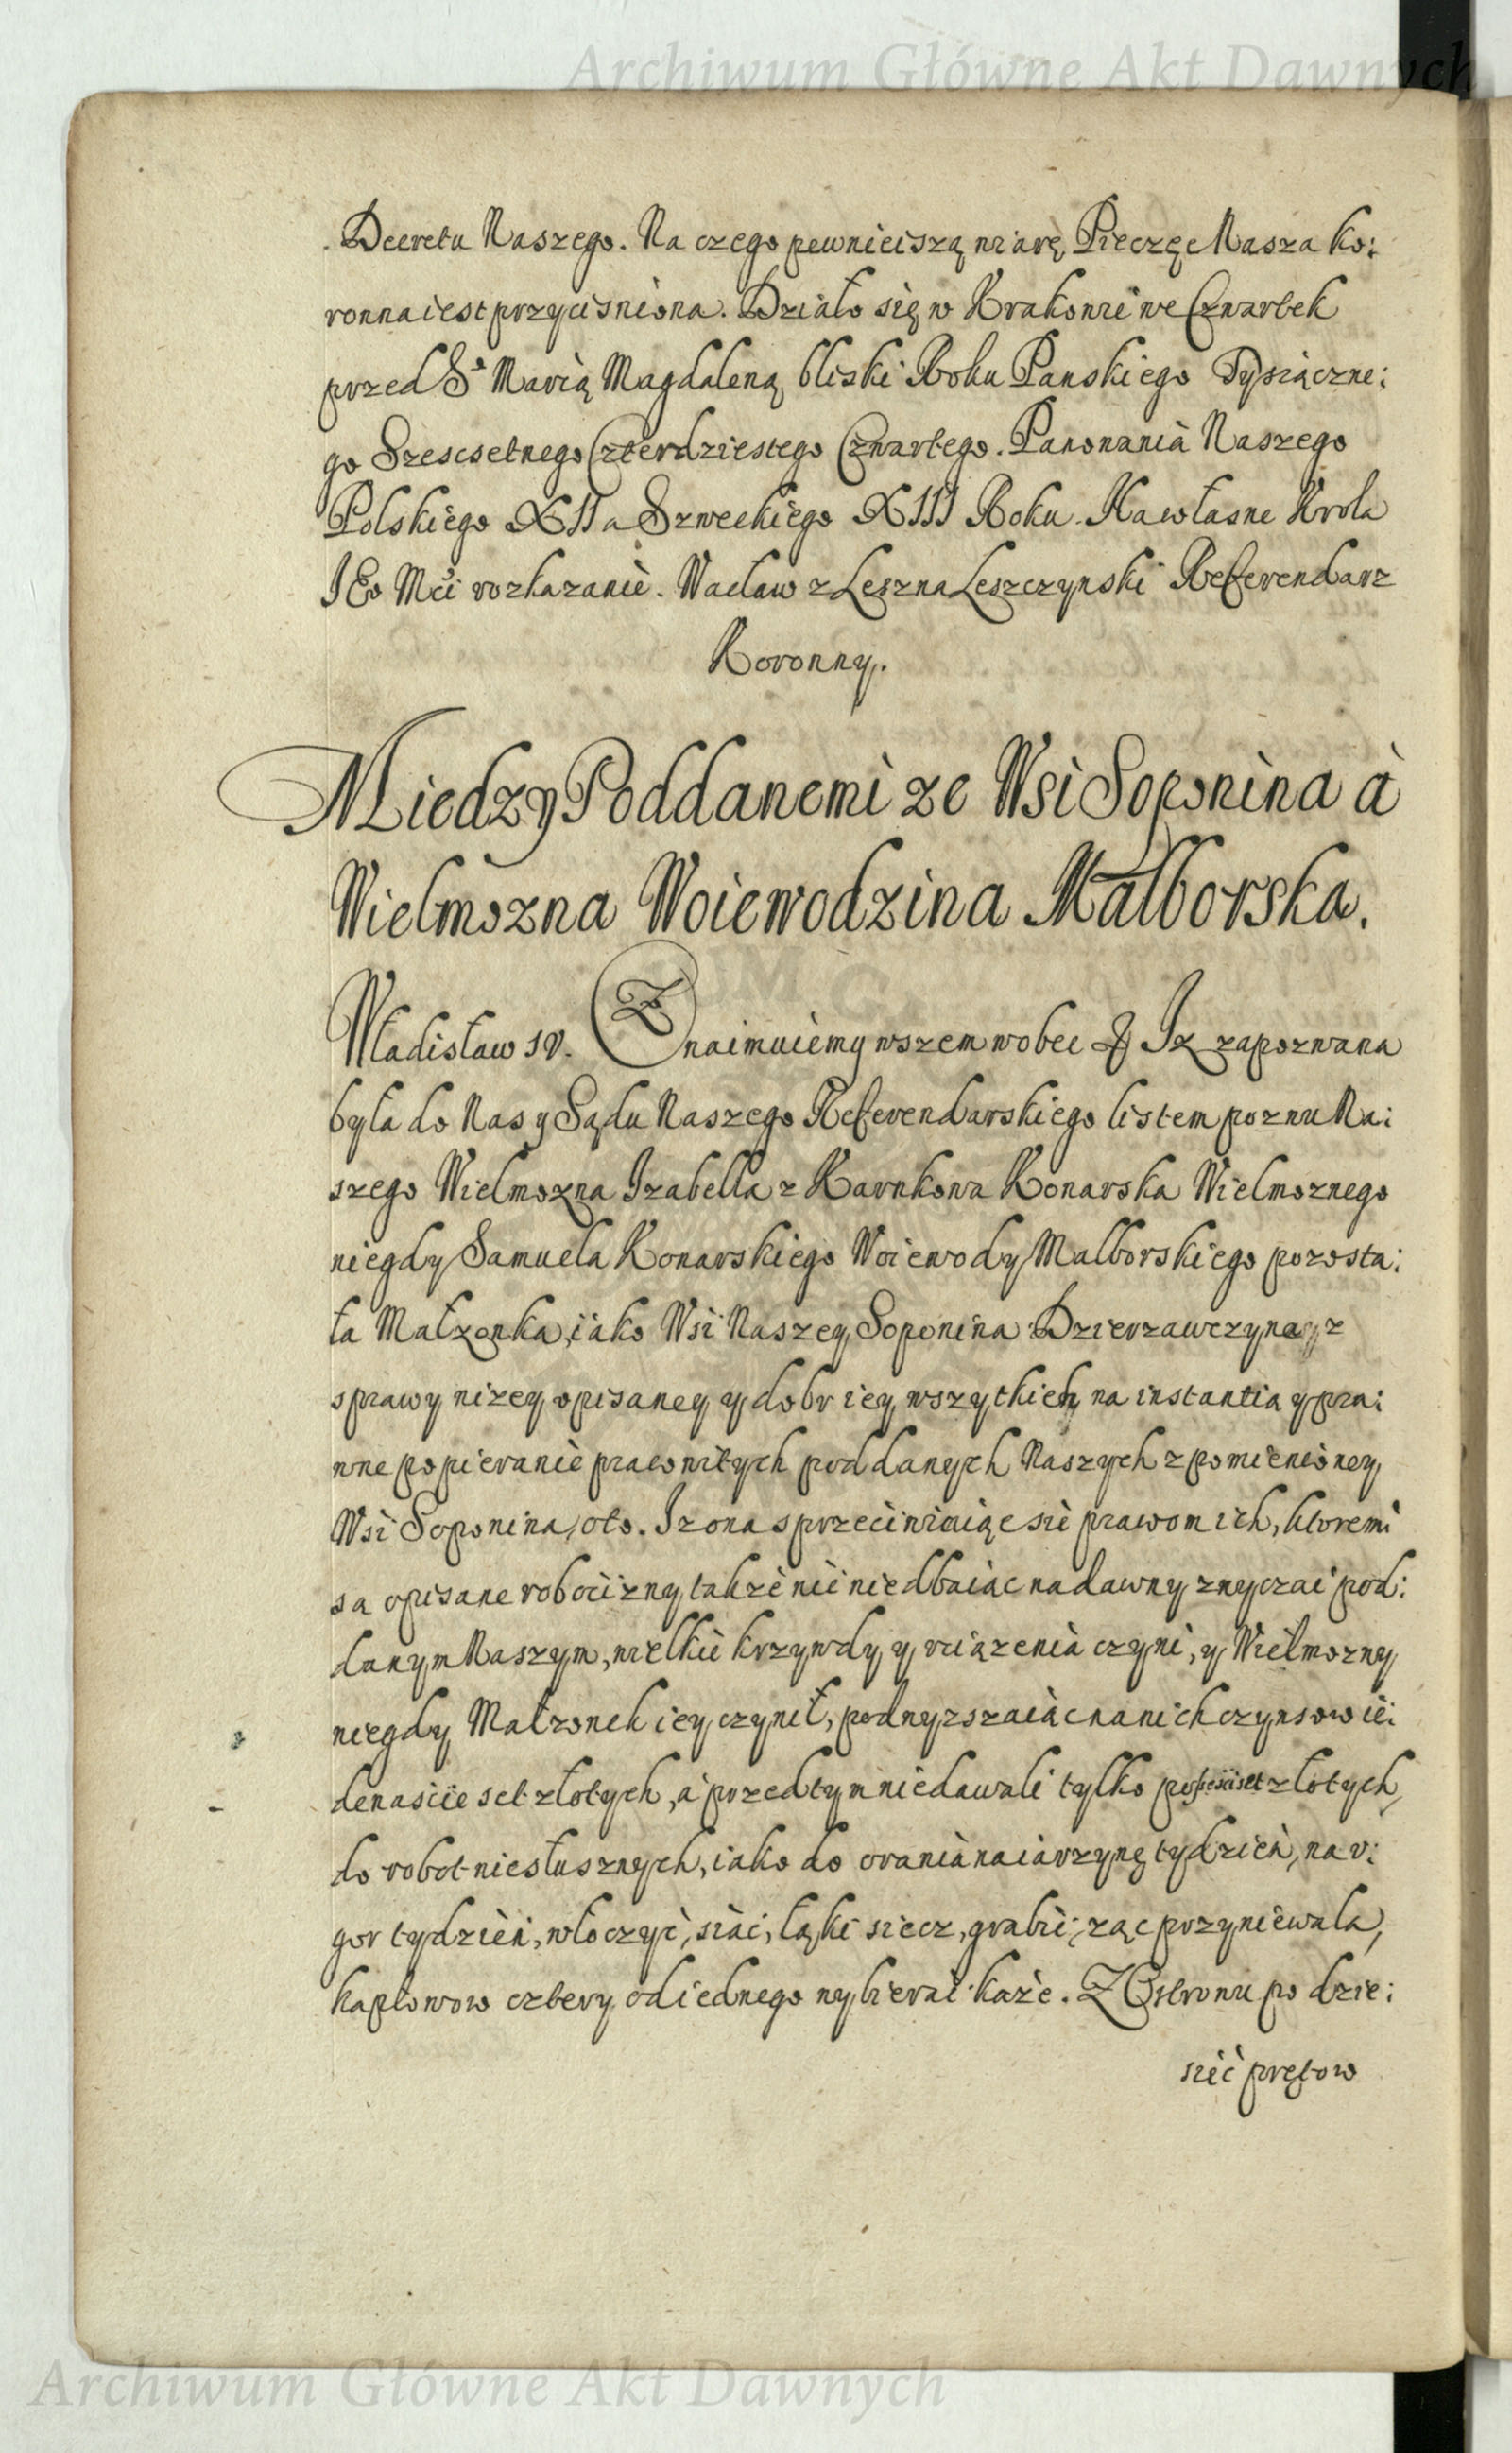 Archiwum Główne Akt Dawnych
Decretu Naszego. Na czego pewnieiszą wiarę, Pieczęc Nasza ko:
ronna iest przycisniona. Działo się w Krakowie we Czwartek
przed Sᵃ Marią Magdaleną bliski Roku Panskiego Tysiączne:
go Szescsetnego Czterdziestego Czwartego. Panowania Naszego
Polskiego XII a Szweckiego XIII Roku. Na własne Krola
IEo Mći rozkazanie. Wacław z Leszna Leszczynski Referendarz
Koronny.
Miedzy Poddanemi ze Wsi Soponina à
Wielmozna Woiewodzina Malborska.
Władisław IV. Znaimuiemy wszem wobec & Iz zapozwana
była do Nas y Sądu Naszego Referendarskiego listem pozwu Na:
szego Wielmozna Izabella z Karnkowa Konarska Wielmoznego
niegdy Samuela Konarskiego Woiewody Malborskiego pozosta:
ła Małzonka, iako Wsi Naszey Soponina Dzierzawczyna z
sprawy nizey opisaney y dobr iey wszytkich, na instantia y pra:
wne popieranie pracowitych poddanych Naszych z pomienioney
Wsi Soponina, oto. Iz ona sprzeciwiaiąc sie prawom ich, ktoremi
sa opisane robocizny, takze nic niedbaiąc na dawny zwyczai pod:
danym Naszym, wielkie krzywdy y uciązenia czyni, y Wielmozny
niegdy Małzonek iey czynił, podwyzszaiąc na nich czynszow ie:
denascie set złotych, a przedtym niedawali tylko po szescset złotych,
do robot niesłusznych, iako do orania na iarzynę tydzien, na u:
gor tydzien, włoczyc, siac, łąki siecz, grabic, ząc przyniewala,
kapłonow cztery od iednego wybierac kaze. Z Ostrowu po dzie:
siec prętow
Archiwum Główne Akt Dawnych